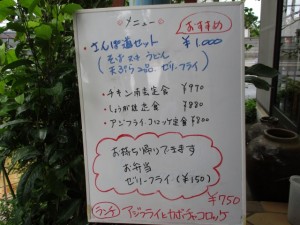 メニュー
おすすめ
・さんぽ道セット ¥1,000
(そば 又は うどん
天ぷら2品 ゼリーフライ)
・チキン南蛮定食 ¥970
・しょうが焼定食 ¥880
・アジフライ・コロッケ定食 ¥800
お持ち帰りできます
お弁当
ゼリーフライ(¥150)
¥750
ランチ アジフライとかぼちゃコロッケ